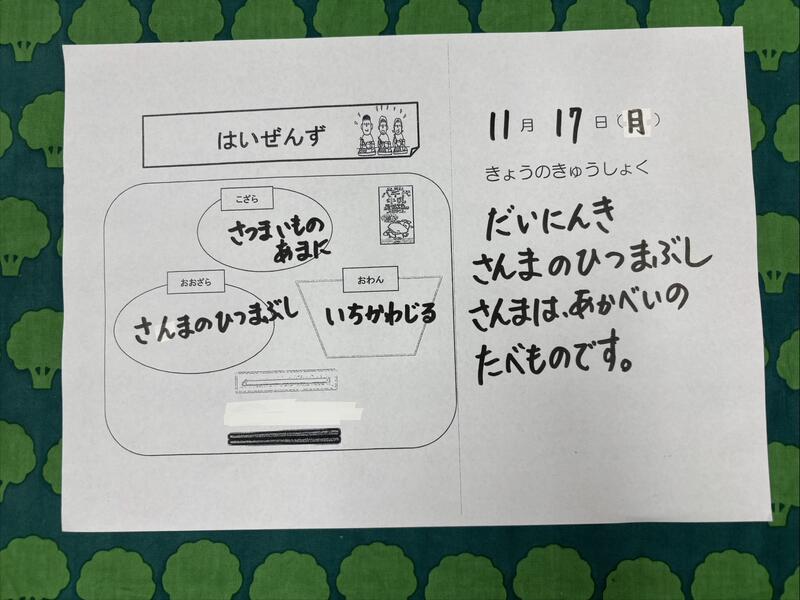 はいぜんず
こざら
さつまいもの
あまに
おおざら
さんまのひつまぶし
おわん
いちかわじる
11月17日(月)
きょうのきゅうしょく
だいにんき
さんまのひつまぶし
さんまは、あかべいの
たべものです。